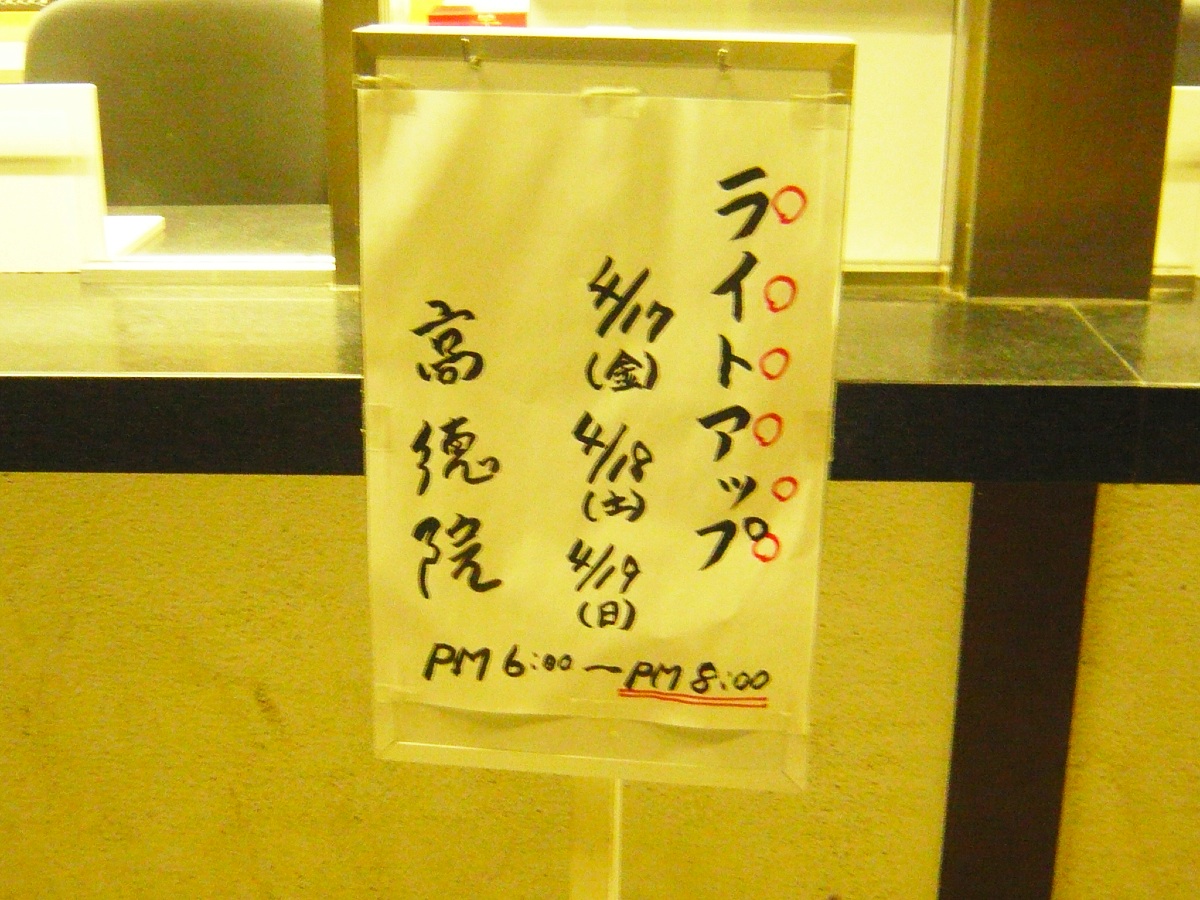 ライトアップ
4/17
(金)
4/18
(土)
4/19
(日)
高徳院
PM 6:00〜PM 8:00